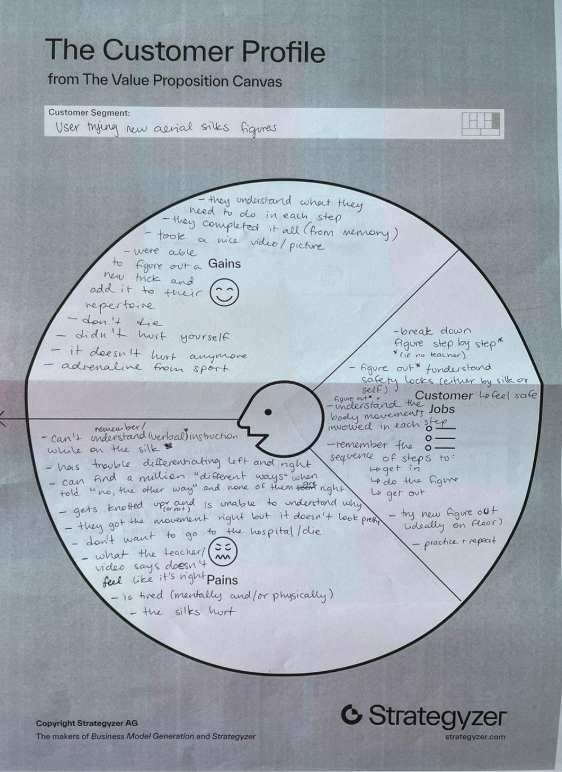 The Customer Profile
from The Value Proposition Canvas
Customer Segment:
User trying new aerial silks figures
- they understand what they
need to do in each step
- they completed it all (from memory)
- took a nice video/picture
- were able
to figure out a
new trick and
add it to their
repertoire
Gains
- don't die
- didn't hurt yourself
- it doesn't hurt anymore
- adrenaline from sport
- break down
figure step by step*
*(ie no teacher)
- figure out* + understand
safety locks (either by silk or
self)
↳ feel safe
Customer
Jobs
figure out* +
- understand the
body movements
involved in each step
- remember the
sequence of steps to:
↳ get in
↳ do the figure
↳ get out
- try new figure out
(ideally on floor)
- practice + repeat
remember/
- can't understand (verbal) instruction
while on the silk
- has trouble differentiating left and right
- can find a million "different ways" when
told "no, the other way" and none of them are right
- gets knotted up and is unable to understand why
(or not)
- they got the movement right but it doesn't look pretty
- don't want to go to the hospital/die
- what the teacher/
video says doesn't
feel like it's right
Pains
- is tired (mentally and/or physically)
- the silks hurt
Copyright Strategyzer AG
The makers of Business Model Generation and Strategyzer
Strategyzer
strategyzer.com